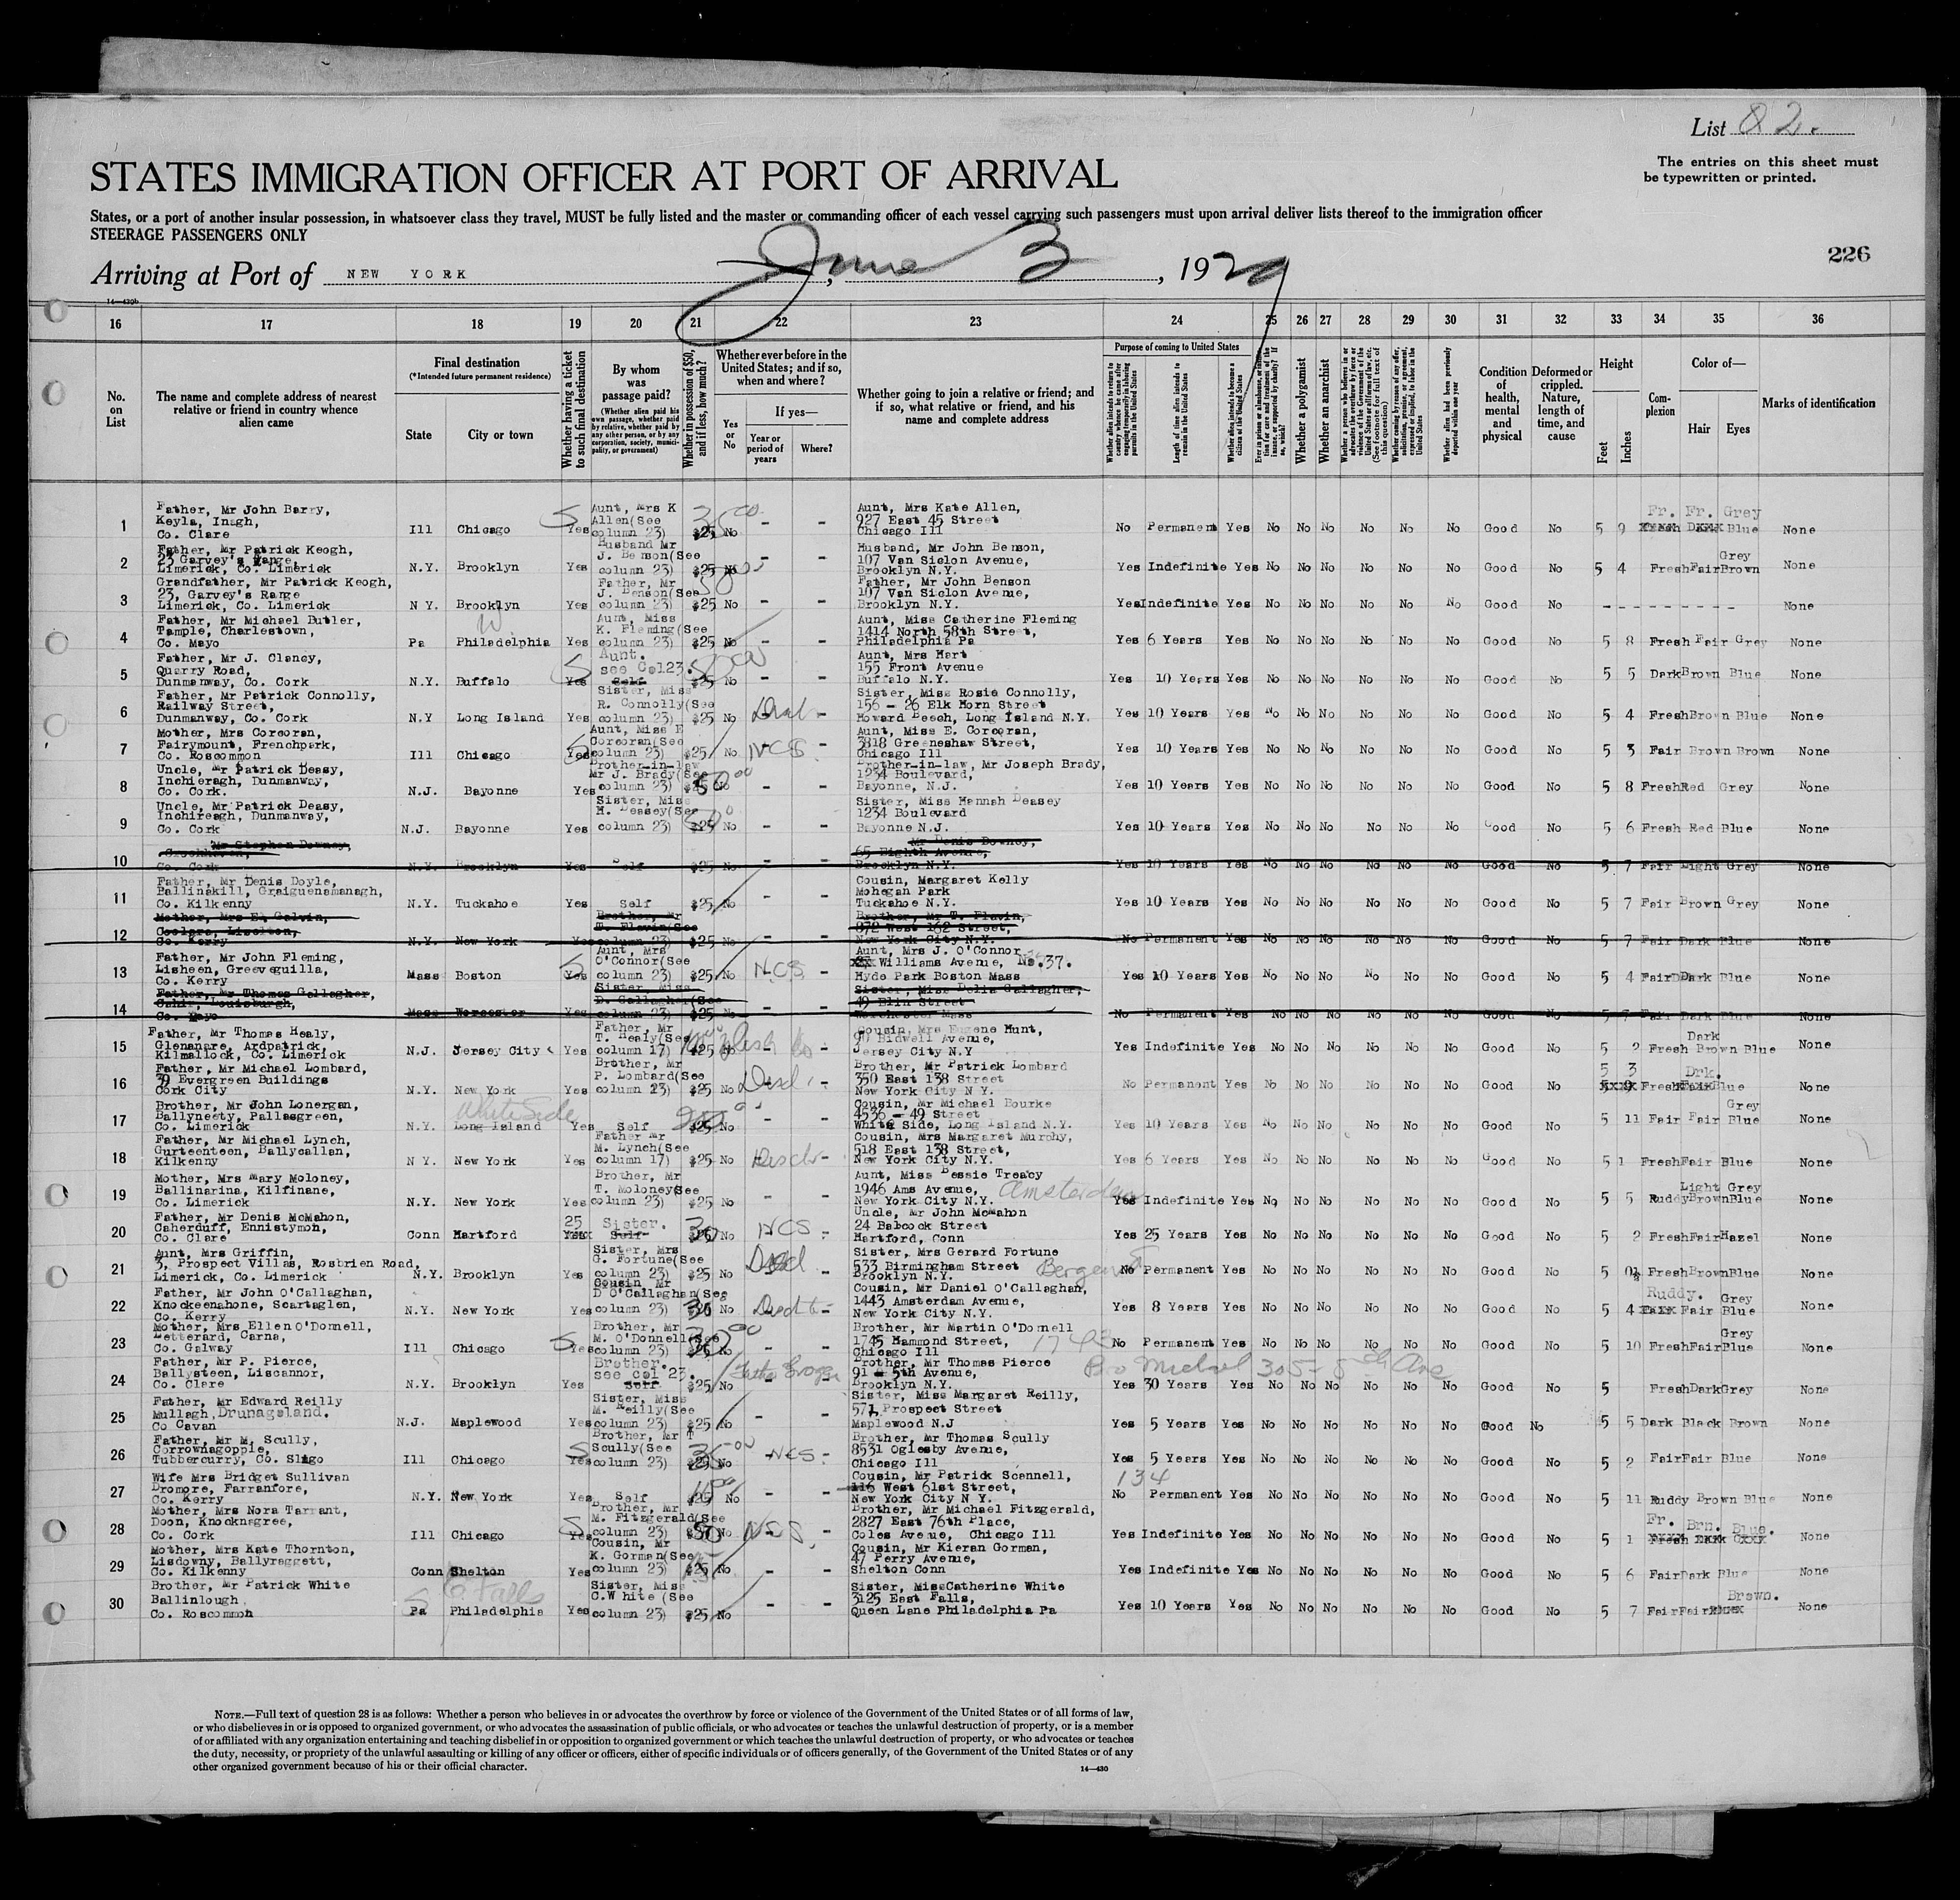 List 82.
The entries on this sheet must
be typewritten or printed.
STATES IMMIGRATION OFFICER AT PORT OF ARRIVAL
States, or a port of another insular possession, in whatsoever class they travel, MUST be fully listed and the master or commanding officer of each vessel carrying such passengers must upon arrival deliver lists thereof to the immigration officer
STEERAGE PASSENGERS ONLY
226
Arriving at Port of NEW YORK , June 3 , 1929
14—430b
16 17 18 19 20 21 22 23 24 25 26 27 28 29 30 31 32 33 34 35 36
No. on List
The name and complete address of nearest relative or friend in country whence alien came
Final destination
(*Intended future permanent residence)
State
City or town
Whether having a ticket to such final destination
By whom was passage paid?
(Whether alien paid his own passage, whether paid by relative, whether paid by any other person, or by any corporation, society, municipality, or government)
Whether in possession of $50, and if less, how much?
Whether ever before in the United States; and if so, when and where?
Yes or No
If yes—
Year or period of years
Where?
Whether going to join a relative or friend; and if so, what relative or friend, and his name and complete address
Purpose of coming to United States
Length of time alien intends to remain in the United States
Whether alien intends to become a citizen of the United States
Whether a polygamist
Whether an anarchist
Whether alien had been previously deported within one year
Condition of health, mental and physical
Deformed or crippled. Nature, length of time, and cause
Height
Feet
Inches
Complexion
Color of—
Hair
Eyes
Marks of identification
1 Father, Mr John Barry, Keyla, Inagh, Co. Clare Ill Chicago Yes Aunt, Mrs K Allen(See column 23) $25 No - - Aunt, Mrs Kate Allen, 927 East 45 Street Chicago Ill No Permanent Yes No No No No No No Good No 5 9 Fr. Fr. Grey None
2 Father, Mr Patrick Keogh, 23 Garvey's Range, Limerick, Co. Limerick N.Y. Brooklyn Yes Husband Mr J. Benson(See column 23) $25 No - - Husband, Mr John Benson, 107 Van Siclon Avenue, Brooklyn N.Y. Yes Indefinite Yes No No No No No No Good No 5 4 Fresh Fair Brown Grey None
3 Grandfather, Mr Patrick Keogh, 23, Garvey's Range Limerick, Co. Limerick N Y. Brooklyn Yes Father, Mr J. Benson(See column 23) $25 No - - Father, Mr John Benson 107 Van Siclon Avenue, Brooklyn N.Y. Yes Indefinite Yes No No No No No No Good No - - - - - - - - - None
4 Father, Mr Michael Butler, Tample, Charlestown, Co. Mayo Pa Philadelphia Yes Aunt, Miss K. Fleming(See column 23) $25 No - - Aunt, Miss Catherine Fleming 1414 North 58th Street, Philadelphia Pa Yes 6 Years Yes No No No No No No Good No 5 8 Fresh Fair Grey None
5 Father, Mr J. Clancy, Quarry Road, Dunmanway, Co. Cork N.Y. Buffalo Yes Aunt. see Col23. Self $25 No - - Aunt, Mrs Hart 155 Front Avenue Buffalo N.Y. Yes 10 Years Yes No No No No No No Good No 5 5 Dark Brown Blue None
6 Father, Mr Patrick Connolly, Railway Street, Dunmanway, Co. Cork N.Y Long Island Yes Sister, Miss R. Connolly(See column 23) $25 No - Sister, Miss Rosie Connolly, 156 - 26 Elk Horn Street Howard Beech, Long Island N.Y. Yes 10 Years Yes No No No No No No Good No 5 4 Fresh Brown Blue None
7 Mother, Mrs Corcoran, Fairymount, Frenchpark, Co. Roscommon Ill Chicago Yes Aunt, Miss E Corcoran(See column 23) $25 No NCS - Aunt, Miss E. Corcoran, 3818 Greeneshaw Street, Chicago Ill Yes 10 Years Yes No No No No No No Good No 5 3 Fair Brown Brown None
8 Uncle, Mr Patrick Deasy, Inchieragh, Dunmanway, Co. Cork. N.J. Bayonne Yes Brother-in-law Mr J. Brady(See column 23) 50 00 No - - Brother-in-law, Mr Joseph Brady, 1234 Boulevard, Bayonne, N.J. Yes 10 Years Yes No No No No No No Good No 5 8 Fresh Red Grey None
9 Uncle, Mr Patrick Deasy, Inchireagh, Dunmanway, Co. Cork N.J. Bayonne Yes Sister, Miss H. Deasey(See column 23) $25 No - - Sister, Miss Hannah Deasey 1234 Boulevard Bayonne N.J. Yes 10 Years Yes No No No No No No Good No 5 6 Fresh Red Blue None
10 Mr Stephen Downey, Crookhaven, Co. Cork N.Y. Brooklyn Yes Self $25 No - - Mr Denis Downey, 65 Eighth Avenue, Brooklyn N.Y. Yes 10 Years Yes No No No No No No Good No 5 7 Fair Light Grey None
11 Father, Mr Denis Doyle, Ballinakill, Graiguenamanagh, Co. Kilkenny N.Y. Tuckahoe Yes Self $25 No - - Cousin, Margaret Kelly Mohegan Park Tuckahoe N.Y. Yes 10 Years Yes No No No No No No Good No 5 7 Fair Brown Grey None
12 Mother, Mrs E. Galvin, Liselton, Co. Kerry N.Y. New York Yes Brother, Mr T. Flavin(See column 23) $25 No - - Brother, Mr T. Flavin, 872 West 162 Street, New York City N.Y. No Permanent Yes No No No No No No Good No 5 7 Fair Dark Blue None
13 Father, Mr John Fleming, Lisheen, Greeveguilla, Co. Kerry Mass Boston Yes Aunt, Mrs O'Connor(See column 23) $25 No NCS - Aunt, Mrs J. O'Connor Williams Avenue, No.37. Hyde Park Boston Mass Yes 10 Years Yes No No No No No No Good No 5 4 Fair Dark Blue None
14 Father, Mr Thomas Gallagher, Cahir, Louisburgh, Co. Mayo Mass Worcester Yes Sister, Miss D. Gallagher(See column 23) $25 No - - Sister, Miss Delia Gallagher, 49 Elin Street Worchester Mass No Permanent Yes No No No No No No Good No 5 7 Fair Dark Blue None
15 Father, Mr Thomas Healy, Glenanare, Ardpatrick, Kilmallock, Co. Limerick N.J. Jersey City Yes Father, Mr T. Healy(See column 17) $25 - Cousin, Mrs Eugene Hunt, 97 Bidwell Avenue, Jersey City N.Y Yes Indefinite Yes No No No No No No Good No 5 2 Fresh Dark Brown Blue None
16 Father, Mr Michael Lombard, 39 Evergreen Buildings Cork City N.Y. New York Yes Brother, Mr P. Lombard(See column 23) $25 No - Brother, Mr Patrick Lombard 350 East 138 Street New York City N.Y. No Permanent Yes No No No No No No Good No 5 3 Fresh Drk. Blue None
17 Brother, Mr John Lonergan, Ballyneety, Pallasgreen, Co. Limerick N.Y. White Side Long Island Yes Self $25 No - - Cousin, Mr Michael Bourke 4536 - 49 Street White Side, Long Island N.Y. Yes 10 Years Yes No No No No No No Good No 5 11 Fair Fair Grey Blue None
18 Father, Mr Michael Lynch, Gurteenteen, Ballycallan, Kilkenny N Y. New York Yes Father Mr M. Lynch(See column 17) $25 No - Cousin, Mrs Margaret Murphy, 518 East 138 Street, New York City N.Y. Yes 6 Years Yes No No No No No No Good No 5 1 Fresh Fair Blue None
19 Mother, Mrs Mary Moloney, Ballinarina, Kilfinane, Co. Limerick N.Y. New York Yes Brother, Mr T. Moloney(See column 23) $25 No - - Aunt, Miss Bessie Treacy 1946 Ams Avenue, Amsterdam New York City N.Y. Yes Indefinite Yes No No No No No No Good No 5 5 Ruddy Light Brown Grey Blue None
20 Father, Mr Denis McMahon, Caherduff, Ennistymon, Co. Clare Conn Hartford 25 Sister. Self 30 No NCS - Uncle, Mr John McMahon 24 Babcock Street Hartford, Conn Yes 25 Years Yes No No No No No No Good No 5 2 Fresh Fair Hazel None
21 Aunt, Mrs Griffin, 3, Prospect Villas, Rosbrien Road, Limerick, Co. Limerick N.Y. Brooklyn Yes Sister, Mrs G. Fortune(See column 23) $25 No - Sister, Mrs Gerard Fortune 533 Birmingham Street Bergen Brooklyn N.Y. No Permanent Yes No No No No No No Good No 5 0½ Fresh Brown Blue None
22 Father, Mr John O'Callaghan, Knockeenahone, Scartaglen, Co. Kerry N.Y. New York Yes Cousin, Mr D O'Callaghan(See column 23) 30 No - Cousin, Mr Daniel O'Callaghan, 1443 Amsterdam Avenue, New York City N.Y. Yes 8 Years Yes No No No No No No Good No 5 4 Ruddy. Fair Grey Blue None
23 Mother, Mrs Ellen O'Donnell, Letterard, Carna, Co. Galway Ill Chicago Yes Brother, Mr M. O'Donnell(See column 23) No - - Brother, Mr Martin O'Donnell 1745 Hammond Street, 1743 Chicago Ill No Permanent Yes No No No No No No Good No 5 10 Fresh Fair Grey Blue None
24 Father, Mr P. Pierce, Ballysteen, Liscannor, Co. Clare N.Y. Brooklyn Yes Brother. see col 23. Self $25 No - - Brother, Mr Thomas Pierce 91 - 5th Avenue, Brooklyn N.Y. Bro Michael 305 - 8th Ave Yes 30 Years Yes No No No No No No Good No 5 Fresh Dark Grey None
25 Father, Mr Edward Reilly Mullagh, Drunageland. Co Cavan N.J. Maplewood Yes Sister, Miss M. Reilly(See column 23) $25 No - - Sister, Miss Margaret Reilly, 571 Prospect Street Maplewood N.J Yes 5 Years Yes No No No No No No Good No 5 5 Dark Black Brown None
26 Father, Mr M. Scully, Corrownagopple, Tubbercurry, Co. Sligo Ill Chicago Yes Brother, Mr T Scully(See column 23) No NCS - Brother, Mr Thomas Scully 8531 Oglesby Avenue, Chicago Ill Yes 5 Years Yes No No No No No No Good No 5 2 Fair Fair Blue None
27 Wife Mrs Bridget Sullivan Dromore, Farranfore, Co. Kerry N.Y. New York Yes Self $25 No - - Cousin, Mr Patrick Scannell, 134 116 West 61st Street, New York City N Y. No Permanent Yes No No No No No No Good No 5 11 Ruddy Brown Blue None
28 Mother, Mrs Nora Tarrant, Doon, Knocknagree, Co. Cork Ill Chicago Yes Brother, Mr M. Fitzgerald(See column 23) 50 No NCS - Brother, Mr Michael Fitzgerald, 2827 East 76th Place, Coles Avenue, Chicago Ill Yes Indefinite Yes No No No No No No Good No 5 1 Fr. Brn. Blue. None
29 Mother, Mrs Kate Thornton, Lisdowny, Ballyraggett, Co. Kilkenny Conn Shelton Yes Cousin, Mr K. Gorman(See column 23) $25 No - - Cousin, Mr Kieran Gorman, 47 Perry Avenue, Shelton Conn Yes Indefinite Yes No No No No No No Good No 5 6 Fair Dark Blue None
30 Brother, Mr Patrick White Ballinlough Co. Roscommon Pa E Falls Philadelphia Yes Sister, Miss C.White (See column 23) $25 No - - Sister, Miss Catherine White 3125 East Falls, Queen Lane Philadelphia Pa Yes 10 Years Yes No No No No No No Good No 5 7 Fair Fair Brown. None
NOTE.—Full text of question 28 is as follows: Whether a person who believes in or advocates the overthrow by force or violence of the Government of the United States or of all forms of law,
or who disbelieves in or is opposed to organized government, or who advocates the assassination of public officials, or who advocates or teaches the unlawful destruction of property, or is a member
of or affiliated with any organization entertaining and teaching disbelief in or opposition to organized government or which teaches the unlawful destruction of property, or who advocates or teaches
the duty, necessity, or propriety of the unlawful assaulting or killing of any officer or officers, either of specific individuals or of officers generally, of the Government of the United States or of any
other organized government because of his or their official character.
14—430